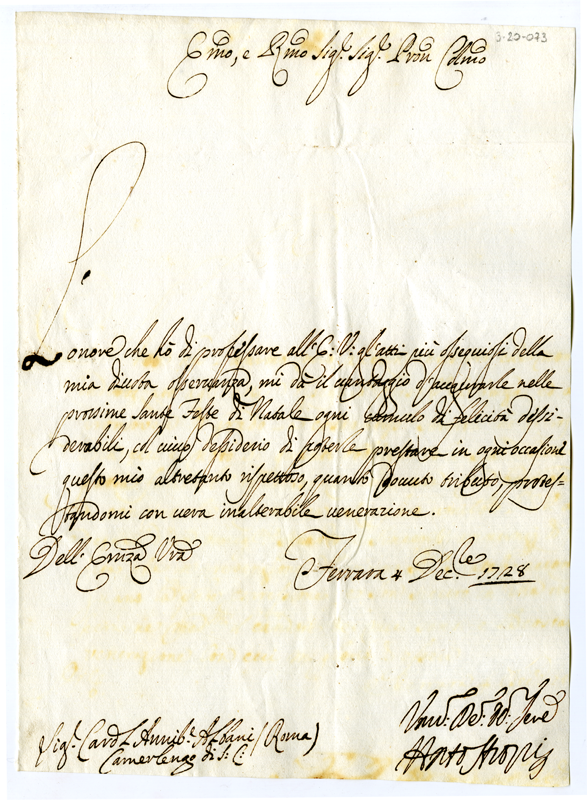 3-20-073
Emo, e Rmo Sig.r Sig.r Pron Colmo
L'onore, che hò di professare all'E: V: gl'atti più ossequiosi della
mia divota osservanza, mi dà il vantaggio d'augurarle nelle
prossime Sante Feste di Natale ogni cumulo di felicità dessi-
derabili, col vivo dessiderio di poterle prestare in ogni occasione
questo mio altretanto rispettoso, quanto dovuto tributo, protes-
tandomi con vera inalterabile venerazione.
Dell' Emza Vra
Ferrara 4 Dec.le 1728
Sig.r Card.l Annib.e Albani (Roma)
Camerlengo di S: C: